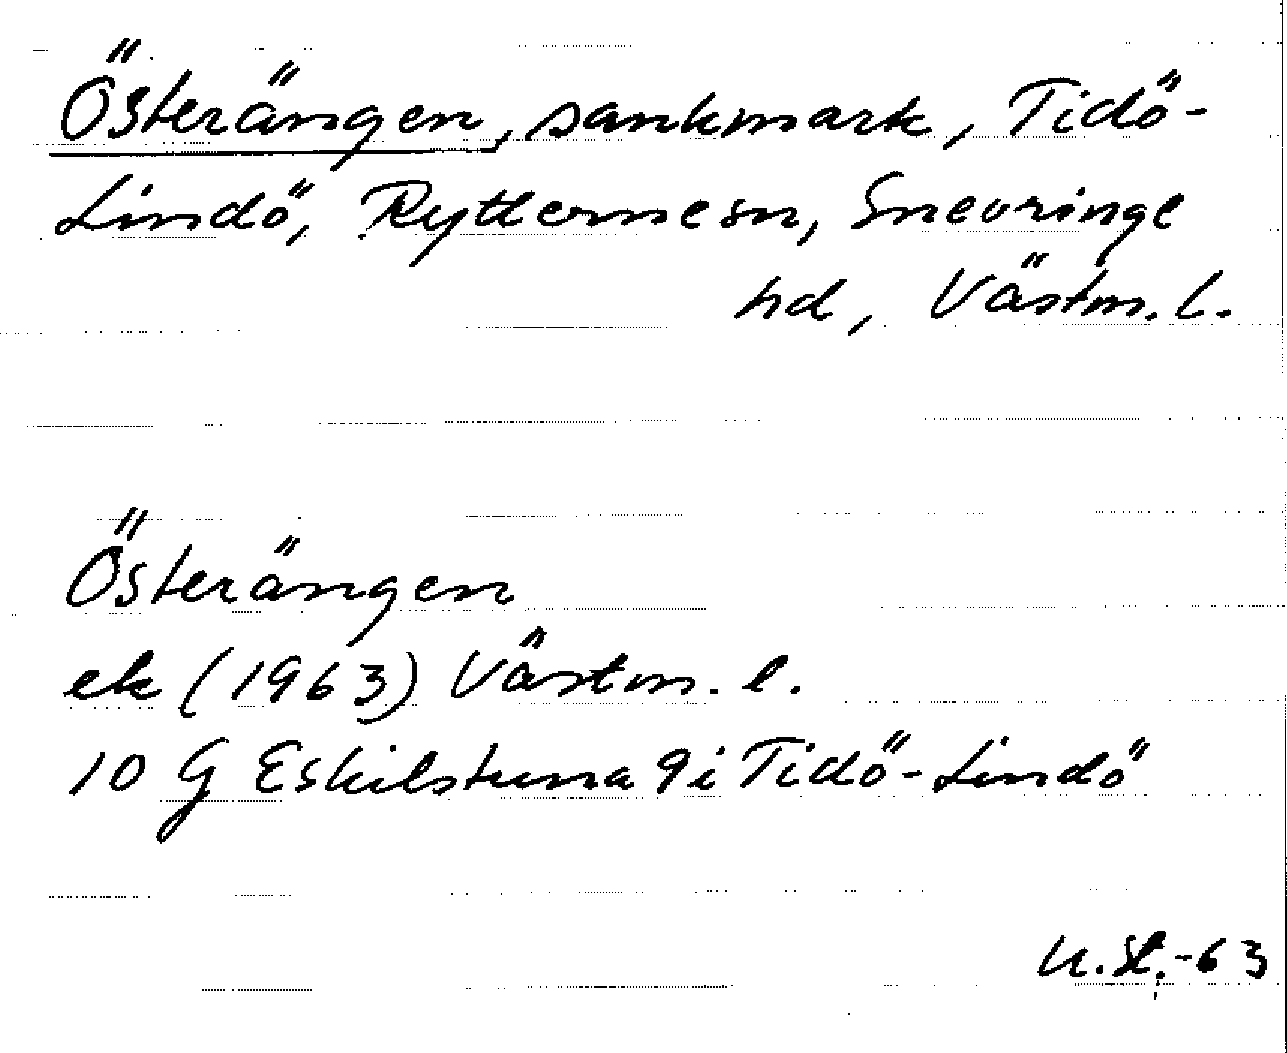 Österängen, sankmark, Tidö-
Lindö, Rytternesn, Snevringe
hd, Västm. l.
Österängen
ek (1963) Västm. l.
10 G Eskilstuna 9i Tidö-Lindö
-63